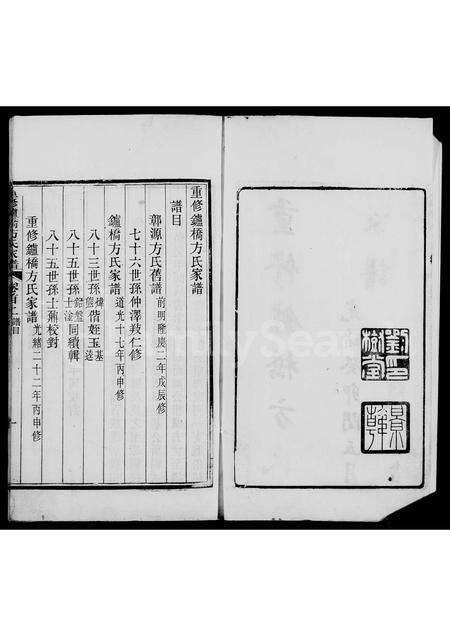 重修鑪橋方氏家譜
譜目
鄣源方氏舊譜 前明隆慶二年戊辰修
七十六世孫仲澤敘仁修
鑪橋方氏家譜 道光十七年丙申修
八十三世孫煒熊偕姪玉基逵
八十五世孫士淦同續輯
八十五世孫士鼐校對
重修鑪橋方氏家譜 光緒二十二年丙申修
譜目
劉樹堂印
景韓
FamilySearch